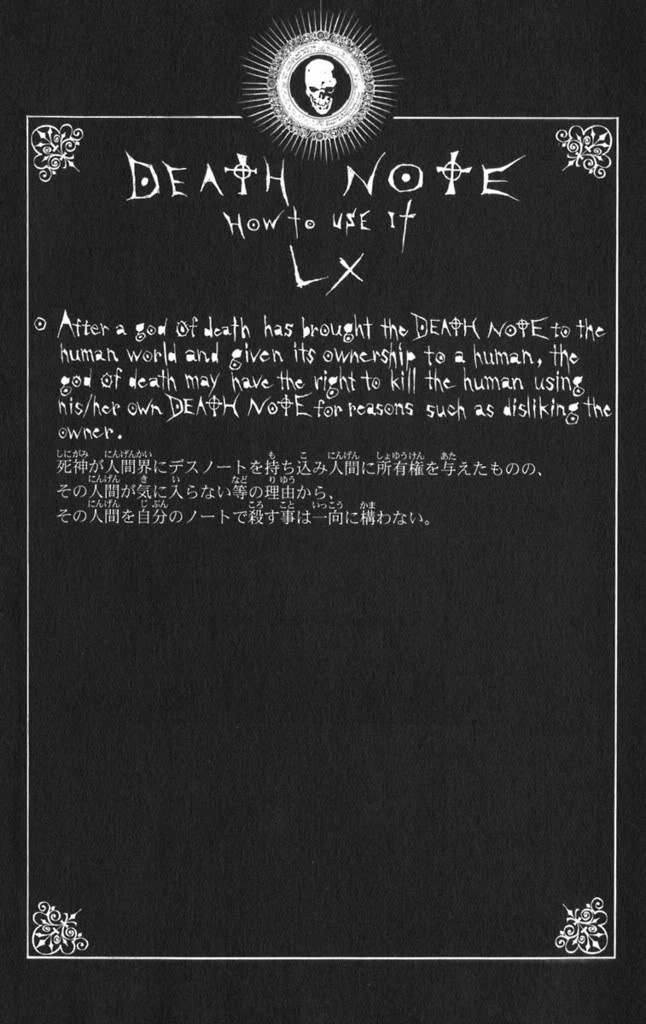 DEATH NOTE
HOW to USE It
LX
After a god of death has brought the DEATH NOTE to the
human world and given its ownership to a human, the
god of death may have the right to kill the human using
his/her own DEATH NOTE for reasons such as disliking the
owner.
死神が人間界にデスノートを持ち込み人間に所有権を与えたものの、
その人間が気に入らない等の理由から、
その人間を自分のノートで殺す事は一向に構わない。